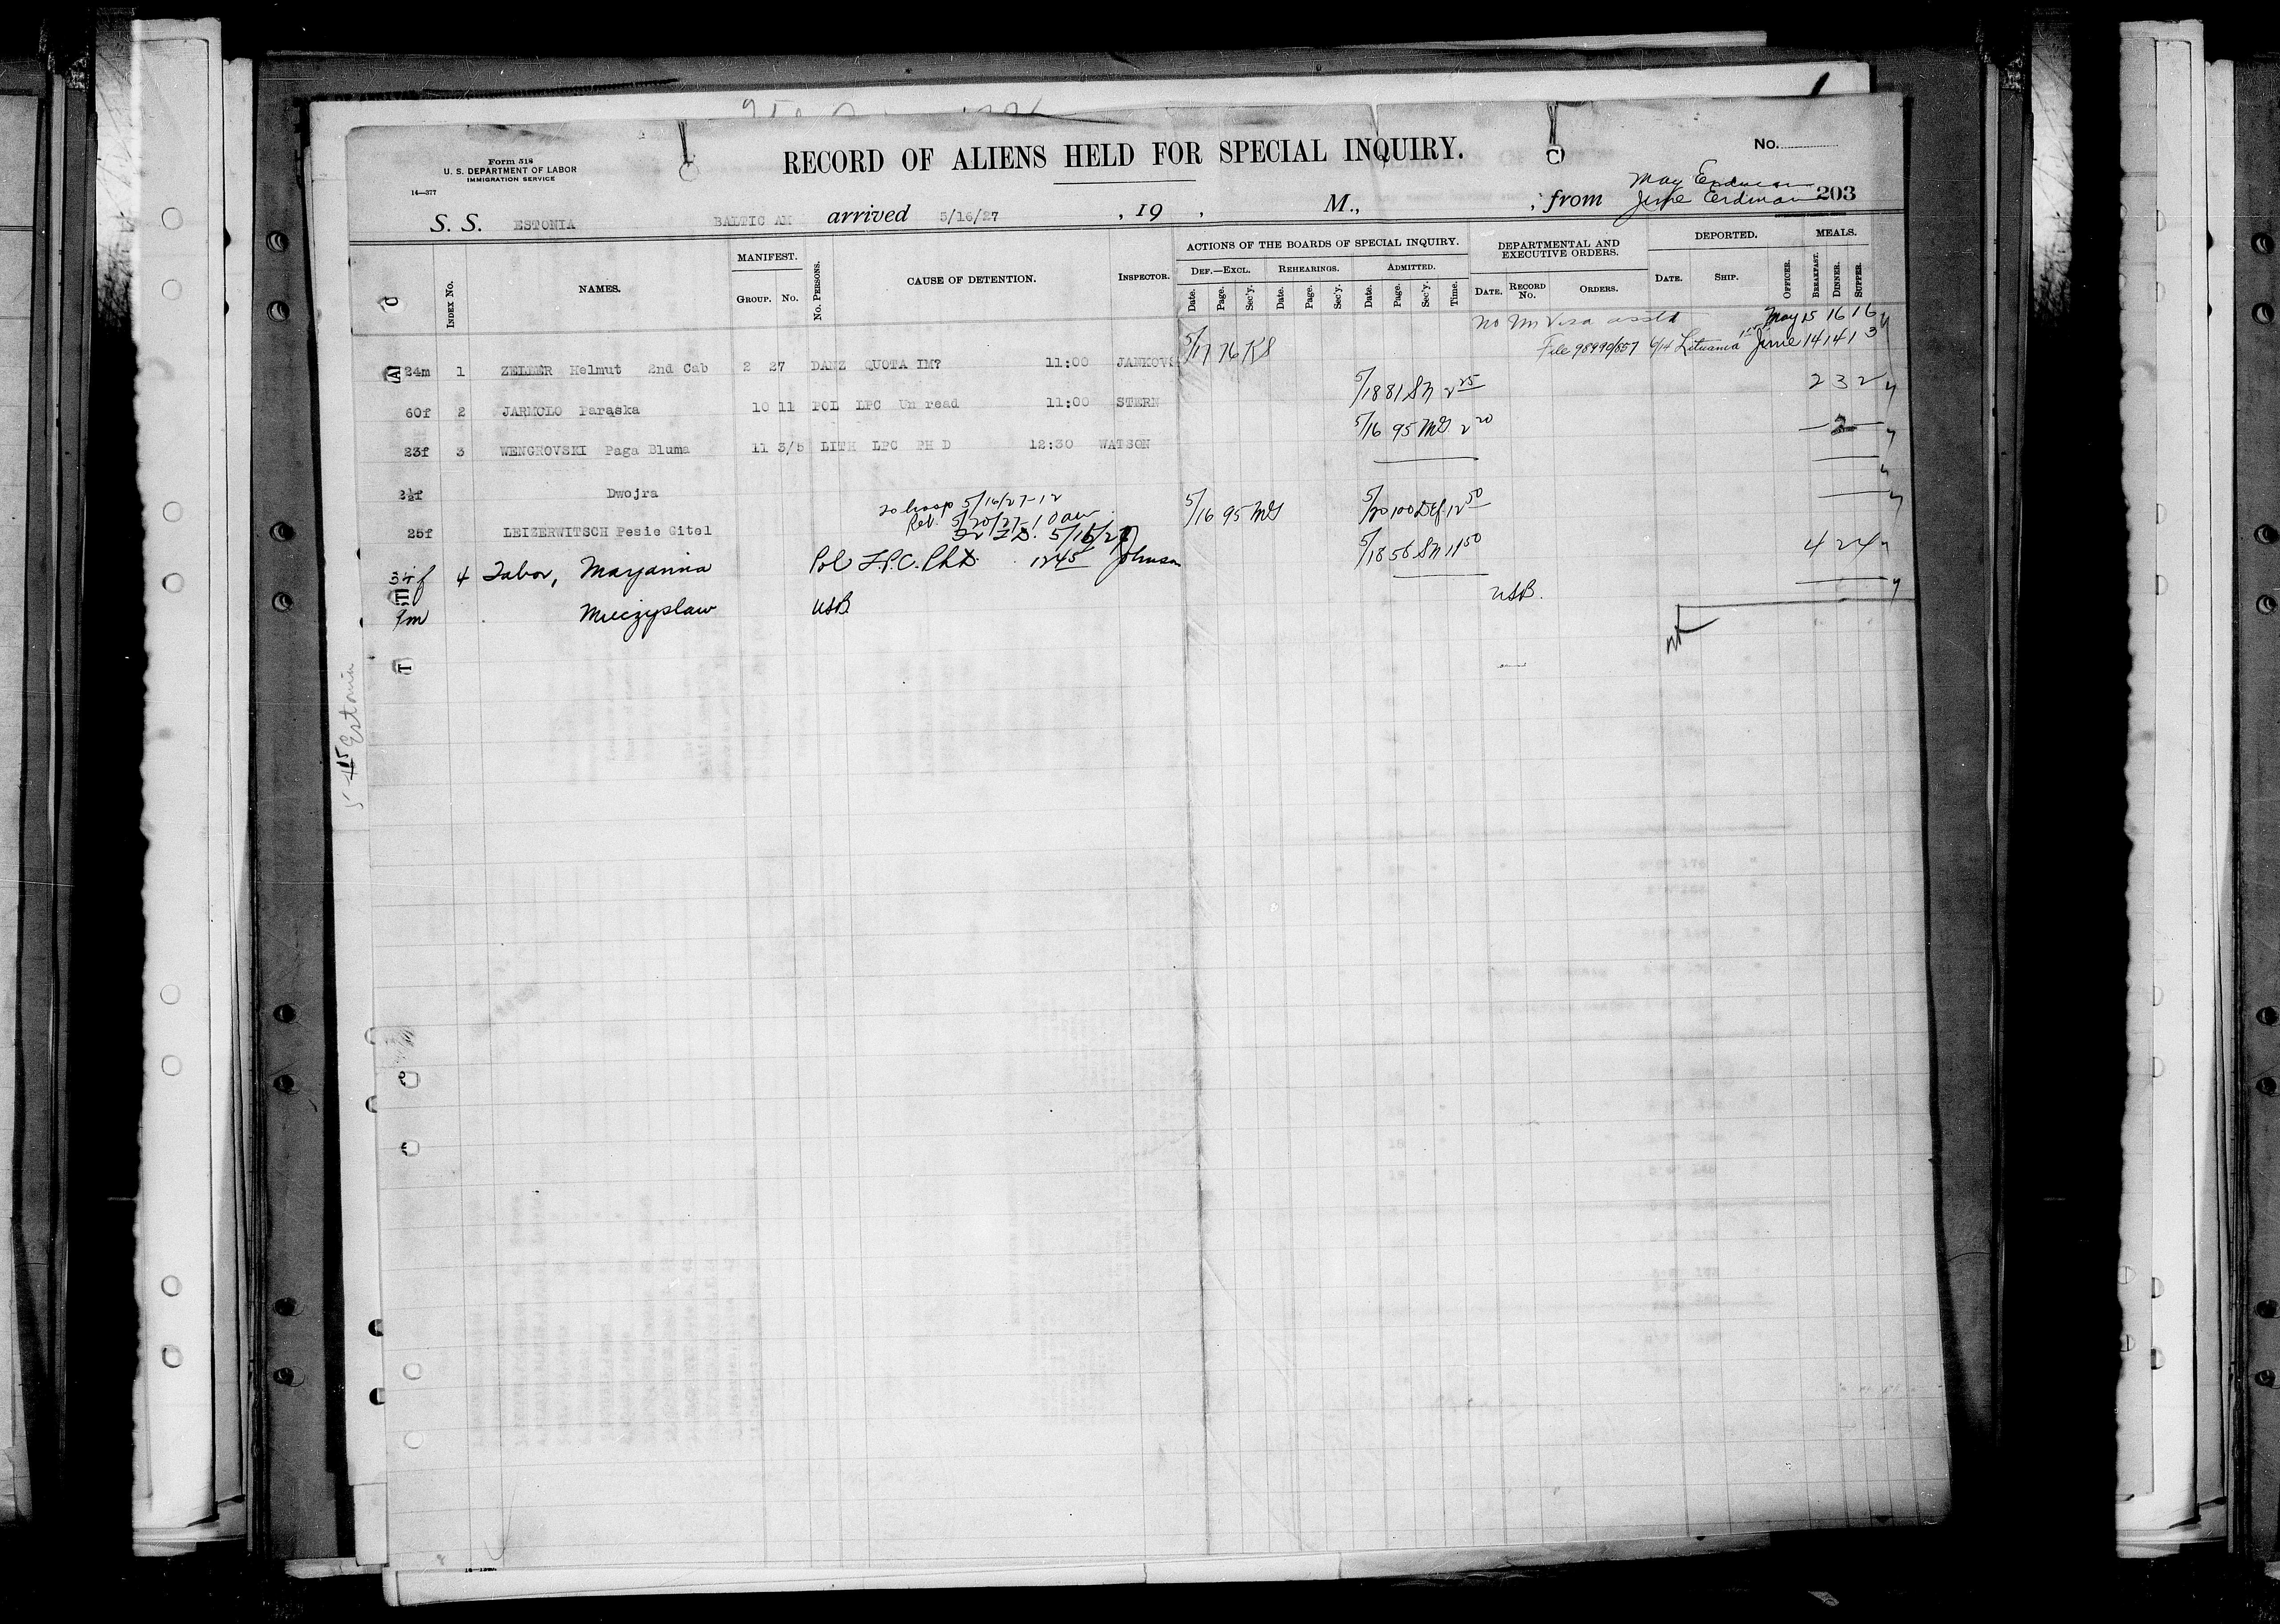 Form 518
U. S. DEPARTMENT OF LABOR
IMMIGRATION SERVICE
14—377
RECORD OF ALIENS HELD FOR SPECIAL INQUIRY.
No.
May Erdman
S. S. ESTONIA BALTIC AM arrived 5/16/27 , 19 , M., ; from June Erdman 203
INDEX No. NAMES. MANIFEST. GROUP. No. No. PERSONS. CAUSE OF DETENTION. INSPECTOR. ACTIONS OF THE BOARDS OF SPECIAL INQUIRY. DEF.—EXCL. Date. Page. Sec'y. REHEARINGS. Date. Page. Sec'y. ADMITTED. Date. Page. Sec'y. Time. DEPARTMENTAL AND EXECUTIVE ORDERS. DATE. RECORD No. ORDERS. DEPORTED. DATE. SHIP. OFFICER. MEALS. BREAKFAST. DINNER. SUPPER.
No Im Visa May 15 16 16
24m 1 ZELLER Helmut 2nd Cab 2 27 DANZ QUOTA IM? 11:00 JANKOVS 5/17 76 KS File 98990/557 6/14 Lituania June 14 14 13
60f 2 JARMOLO Paraska 10 11 POL LPC Un read 11:00 STERN 5/18 81 SN 2 25 2 3 2
23f 3 WENGROVSKI Paga Bluma 11 3/5 LITH LPC PH D 12:30 WATSON 5/16 95 MG 2 20 2
2½f Dwojra
to hosp 5/16/27-12
Ret. 5/20/27-10 am
25f LEIZERWITSCH Pesie Gitel 5/16/27 5/16 95 MG 5/20 100 12 50
34f 4 Tabor, Maryanna Pol L.P.C. Ph D. 1245 Johnson 5/18 56 SN 11 50 4 2 4
9m Mieczyslaw USB. USB.
5-15 Estonia